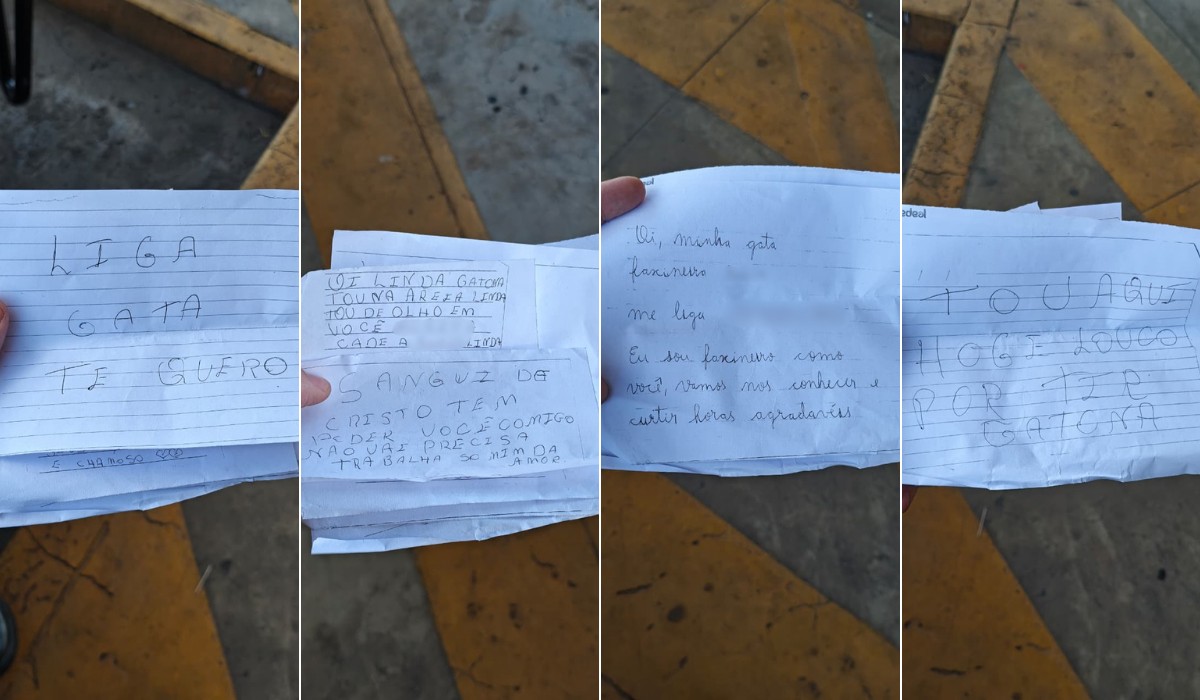 LIGA
GATA
TE QUERO
E CHAMOSO
OI LINDA GATONA
TOU NA AREIA LINDA
TOU DE OLHO EM
VOCÊ
CADE A LINDA
SANGUI DE
CRISTO TEM
PODER VOCÊ COMIGO
NÃO VAI PRECISA
TRABALHA SO MIM DA
AMOR
Oi, minha gata
faxineiro
me liga
Eu sou faxineiro como
você, vamos nos conhecer e
curtir horas agradavéis
edeal
TO U AQUI
HOGE LOUCO
POR TIR
GATONA